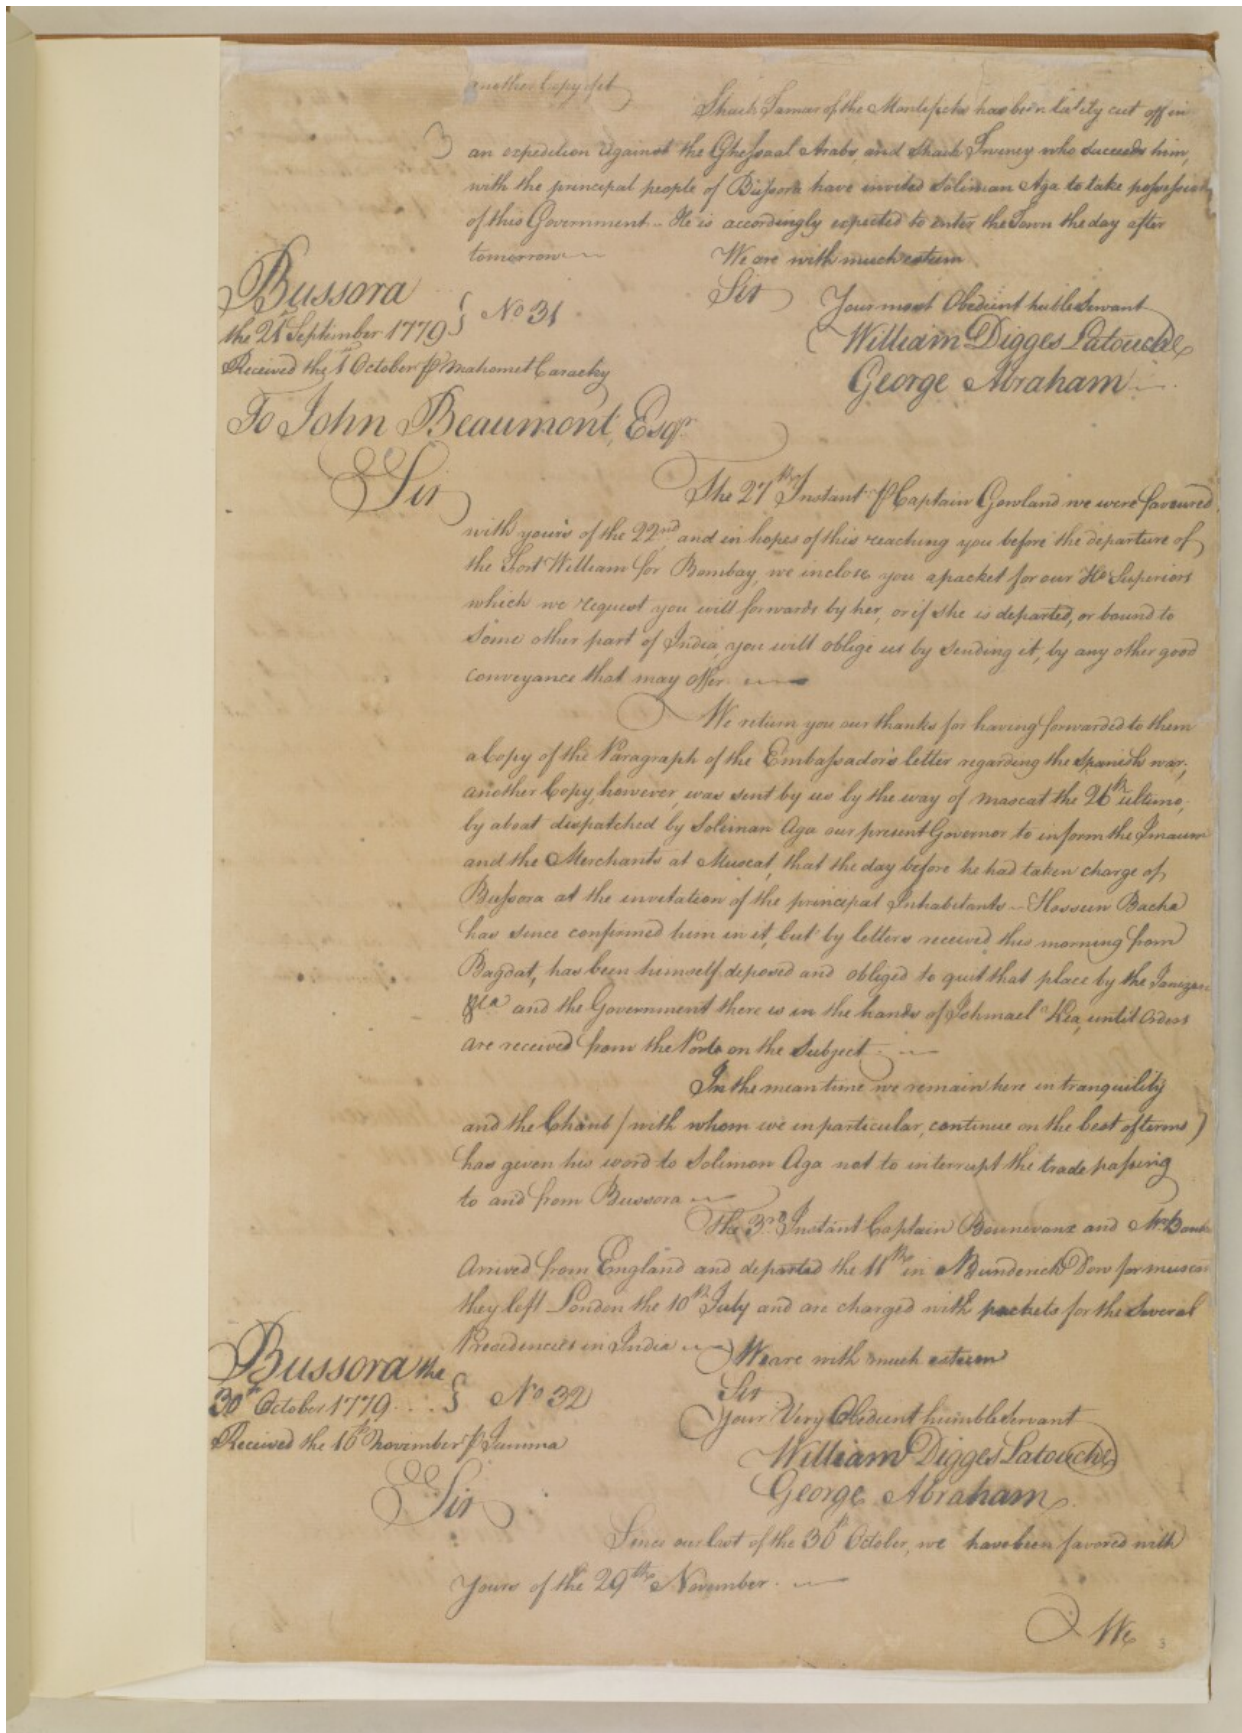 another Copy of it
Shaik Tamar of the Montificks has been lately cut off in
an expedition against the Ghessaal Arabs, and Shaik Twiney who succeeds him,
with the principal people of Bussora have invited Soliman Aga to take possession
of this Government - He is accordingly expected to enter the Town the day after
tomorrow
We are with much esteem
Sir
Your most Obedient hu ble Servant
William Digges Latouche
George Abraham
Bussora
the 21st September 1779 } No 31
Received the 1 October p Mahomet Caracky
To John Beaumont, Esqr.
Sir
The 27th Instant p Captain Gowland we were favoured
with yours of the 22nd and in hopes of this reaching you before the departure of
the Fort William for Bombay, we inclose you a packet for our Ho Superiors
which we request you will forwards by her, or if she is departed, or bound to
some other part of India, you will oblige us by sending it, by any other good
conveyance that may offer.
We return you our thanks for having forwarded to them
a Copy of the Paragraph of the Embassador's letter regarding the Spanish war;
another Copy, however, was sent by us by the way of Mascat the 26th ultimo,
by a boat dispatched by Soliman Aga our present Governor to inform the Imaum
and the Merchants at Muscat, that the day before he had taken charge of
Bussora at the invitation of the principal Inhabitants - Hossein Bacha
has since confirmed him in it, but by letters received this morning from
Bagdat, has been himself deposed and obliged to quit that place by the
&ca and the Government there is in the hands of Ishmael Kea, until Orders
are received from the Porte on the Subject.
In the mean time we remain here in tranquility
and the Chaub (with whom we in particular, continue on the best of terms)
has given his word to Soliman Aga not to interrupt the trade passing
to and from Bussora
The 3rd Instant Captain and Mr
Arrived from England and departed the 11th in a Bunderick Dow for Muscat
they left London the 10th July and are charged with packets for the several
Presidencies in India
We are with much esteem
Sir
Your Very Obedient humble Servant
William Digges Latouche
George Abraham
Bussora the
30th October 1779 . . . } No 32
Received the 16th November p Jumma
Sir
Since our last of the 30th October, we have been favored with
Yours of the 29th November.
We
3